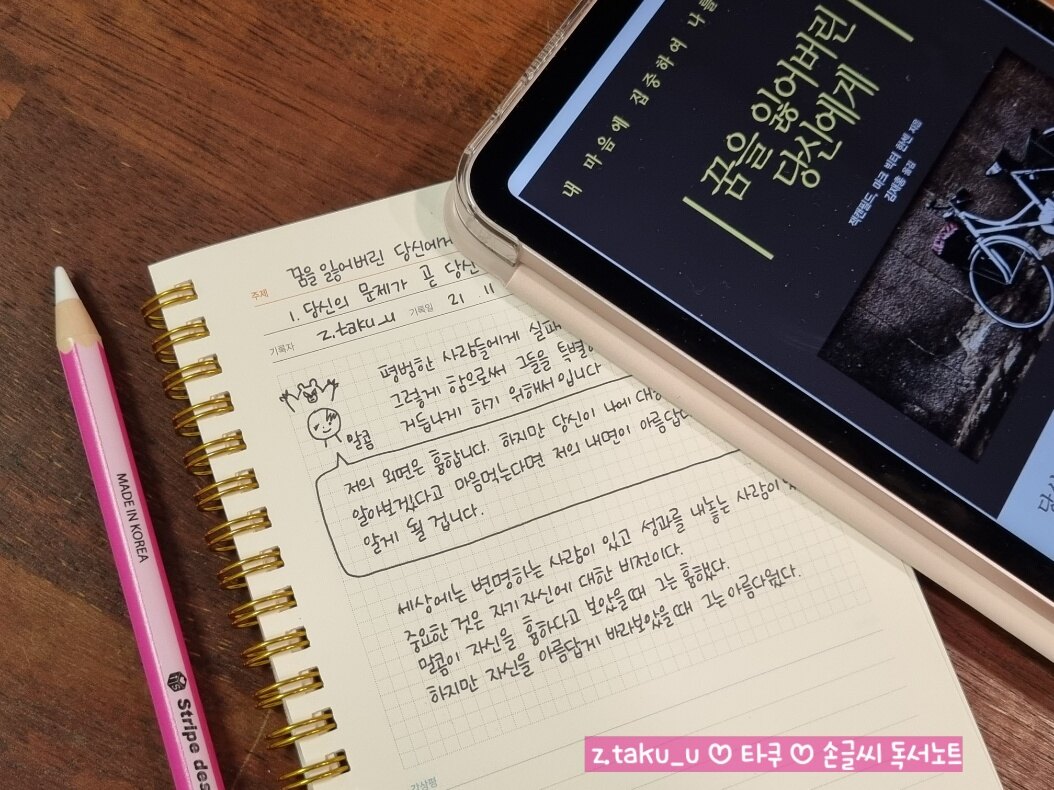 내 마음에 집중하여 나를
꿈을 잃어버린
당신에게
잭캔필드, 마크 빅터 한센 지음
김재홍 옮김
주제 꿈을 잃어버린 당신에게
1. 당신의 문제가 곧 당신
기록자 z.taku_u 기록일 21 11
평범한 사람들에게 실패
그렇게 함으로써 그들을 특별히
거듭나게 하기 위해서입니다
말콤
저의 외면은 흉합니다. 하지만 당신이 나에 대해
알아보겠다고 마음먹는다면 저의 내면이 아름답다
알게 될 겁니다.
세상에는 변명하는 사람이 있고 성과를 내놓는 사람이
중요한 것은 자기 자신에 대한 비전이다.
말콤이 자신을 흉하다고 보았을때 그는 흉했다.
하지만 자신을 아름답게 바라보았을때 그는 아름다웠다.
감상평
MADE IN KOREA
Stripe des
z.taku_u ♡ 타쿠 ♡ 손글씨 독서노트